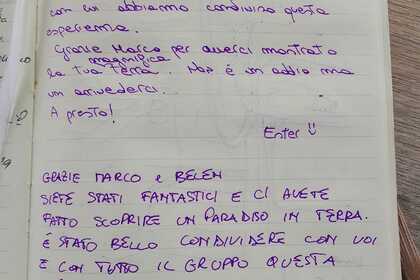 con cui abbiamo condiviso questa
esperienza.
Grazie Marco per averci mostrato
la tua magnifica terra. Non è un addio ma
un arrivederci.
A presto!
Enter
GRAZIE MARCO e BELEN
SIETE STATI FANTASTICI E CI AVETE
FATTO SCOPRIRE UN PARADISO IN TERRA.
É STATO BELLO CONDIVIDERE CON VOI
E CON TUTTO IL GRUPPO QUESTA